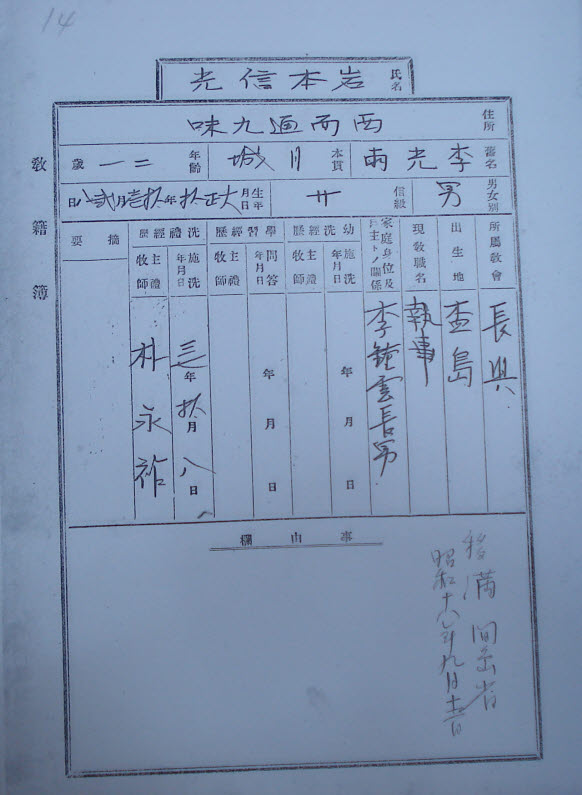 14
教籍簿
氏名 岩本信光
住所 西面 九味
舊名 李光雨
本貫 月城
年齡 二一歲
男女別 男
信級 廿
生年月日 大正拾年拾壹月貳八日
所屬教會 長興
出生地 島
現教職名 執事
家庭身位及戶主トノ關係 李鍾雲長男
幼洗經歷
施洗年月日 年月日
主禮牧師
學習經歷
問答年月日 年月日
主禮牧師
洗禮經歷
施洗年月日 年拾月八日
主禮牧師 朴永祐
摘要
事由欄
移滿 間島省
昭和十八年九月 日